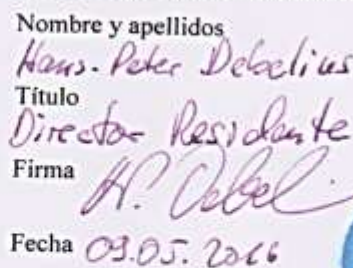 Nombre y apellidos
Hans-Peter Debelius
Título
Director Residente
Firma
Fecha 09.05.2016